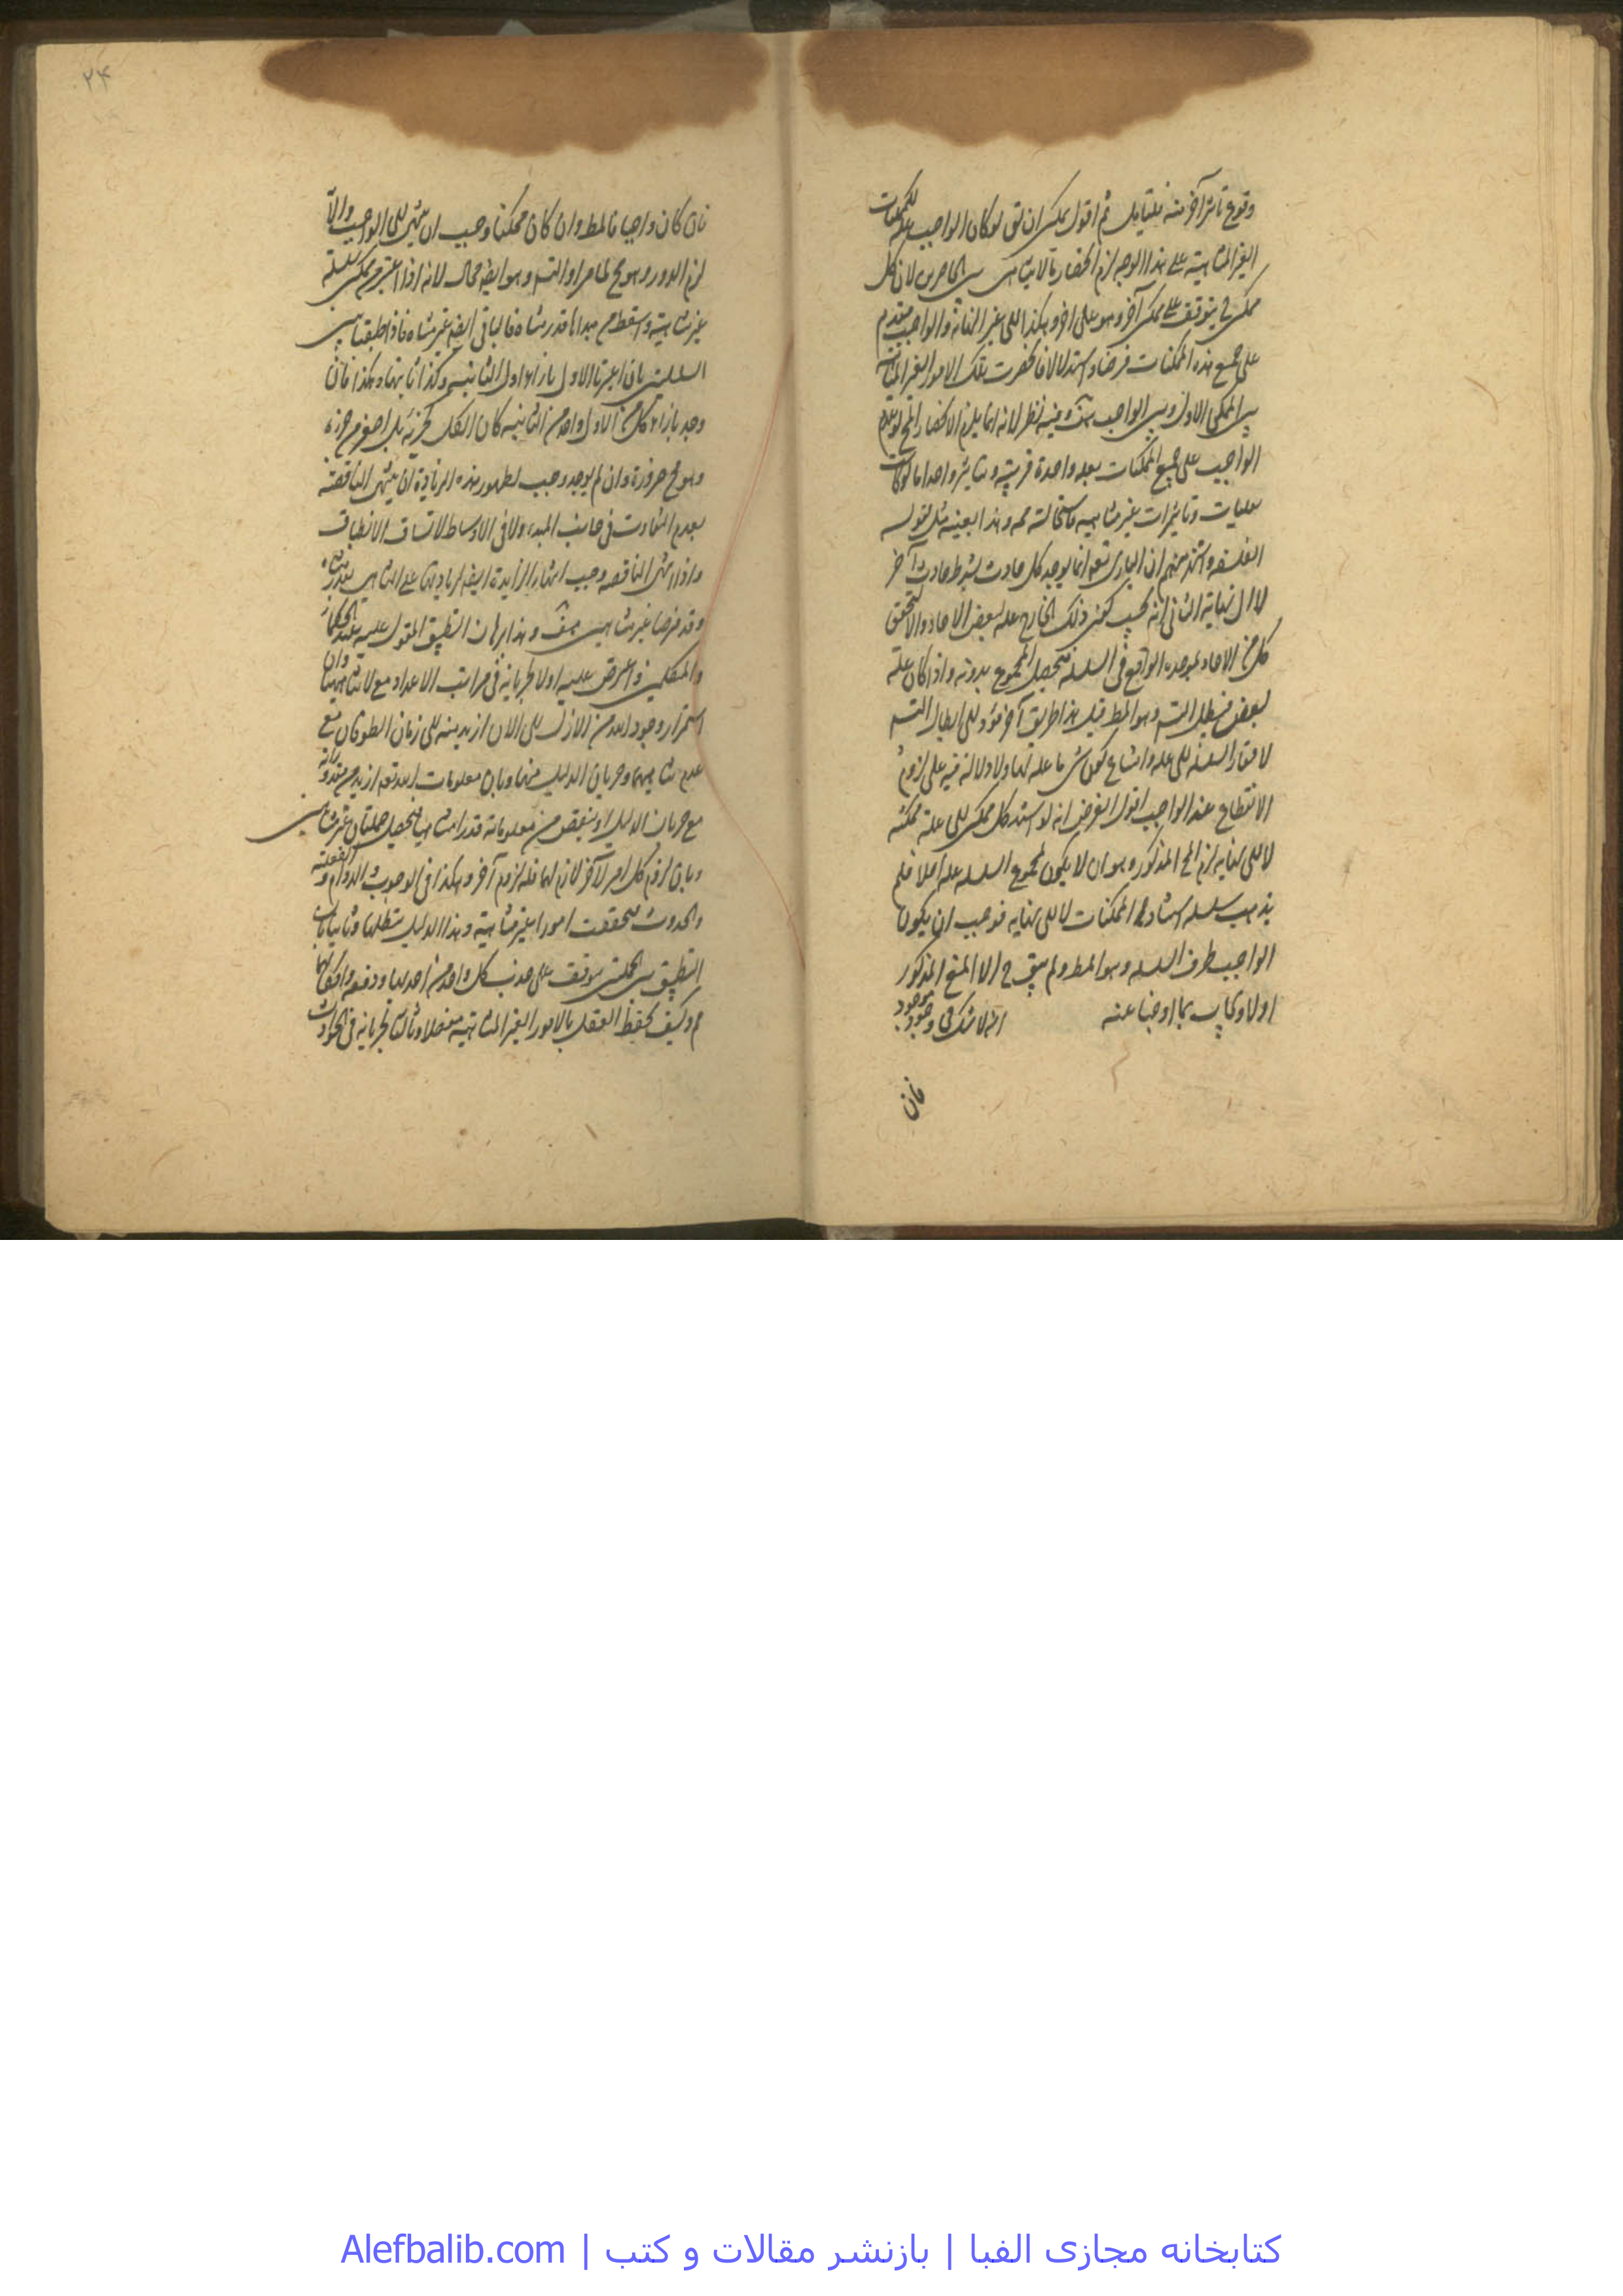 وقوع تاثير آخر منه فليتامل ثم اقول يمكن ان يق لو كان الواجب علة للممكنات
الغير المتناهية على هذا الوجه لزم انحصار ما لا يتناهى بين الحاصرين لان كل
ممكن يتوقف على ممكن آخر وهو على آخر وهكذا الى غير النهاية والواجب متقدم
على جميع هذه الممكنات فرضا واستدلالا فانحصرت تلك الامور الغير المتناهية
بين الممكن الاول وبين الواجب هف وفيه نظر لانه انما يلزم الانحصار المح لو تقدم
الواجب على جميع الممكنات بعلية واحدة قريبة وتاثير واحد اما لو كان
بعليات وتاثيرات غير متناهية فاستحالته مم وهذا بعينه مثل قول
الفلاسفة واشتهر منهم ان البارى تعه انما يوجد كل حادث بشرط حادث آخر
لا الى نهاية الثانى انه يجب كون ذلك الخارج علة لبعض الاحاد والا لتحقق
كل من الاحاد بموجده الواقع فى السلسلة فتحصل المجموع بدونه واذا كان علة
لبعض فبطل التسه وهو المط قيل هذا طريق آخر مؤد الى ابطال التسه
لافتقار السلسلة الى علة وامتناع كون شى ما علة لها ولا دلالة فيه على لزوم
الانقطاع عند الواجب اقول الغرض انه لو استند كل ممكن الى علة ممكنة
لا الى نهاية لزم المح المذكور وهو ان لا يكون لمجموع السلسلة علة اصلا فلم
يذهب سلسلة استناد الممكنات لا الى نهاية فوجب ان يكون
الواجب طرف السلسلة وهو المط ولم يبق ح الا المنع المذكور
اولا ويجاب بما اوضنا عنه انه لا شك فى وجود موجود
فان
۲۴
فان كان واجبا فالمط وان كان ممكنا وجب ان ينتهى الى الواجب والا
لزم الدور وهو مح لما مر او التسه وهو ايضا محال لانه اذا اعتبر من ممكن سلسلة
غير متناهية واسقط من مبداها قدر متناه فالباقى ايضا غير متناه فاذا طبقنا بين
السلسلتين بان اعتبرنا الاول بازاء اول الثانية وكذا ثانيهما وهكذا فان
وجد بازاء كل من الاول واحد من الثانية كان الكل كجزئه بل اصغر من جزء
وهو مح ضرورة وان لم يوجد وجب لظهور هذه الزيادة ان ينتهى الناقصة
لعدم التفاوت فى جانب المبدء ولا فى الاوساط لاتساق الانطباق
واذا انتهى الناقصة وجب انتهاء الزايدة ايضا لزيادتها على المتناهى بقدر متناه
وقد فرضنا غير متناهيين هف وهذا برهان التطبيق المقول عليه عند الحكماء
والمتكلمين واعترض عليه اولا بجريانه فى مراتب الاعداد مع لا تناهيها وان
استمرار وجود الله من الازل الى الان ازيد منه الى زمان الطوفان مع
عدم تناهيهما وجريان الدليل فيهما وبان معلومات الله تعه ازيد من مقدوراته
مع جريان الدليل او ينقص من معلوماته قدرا متناهيا فتحصل جملتان غير متناهيتين
وبان لزوم كل امر لآخر لازم لهما فله لزوم آخر وهكذا فى الوجوب والدوام والفعلية
والحدوث فتحققت امورا غير متناهية وهذا الدليل يبطلها وثانيا بان
التطبيق بين الجملتين يتوقف على جذب كل واحد من احديهما ودفعه وامكانها
مم وكيف يحفظ العقل بالامور الغير المتناهية مفصلا وثالثا بجريانه فى الحوادث
كتابخانه مجازى الفبا | بازنشر مقالات و كتب | Alefbalib.com